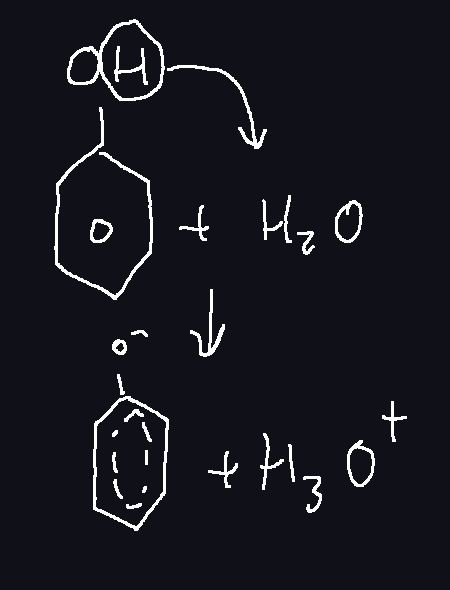 OH
+ H₂O
O⁻
+ H₃O⁺